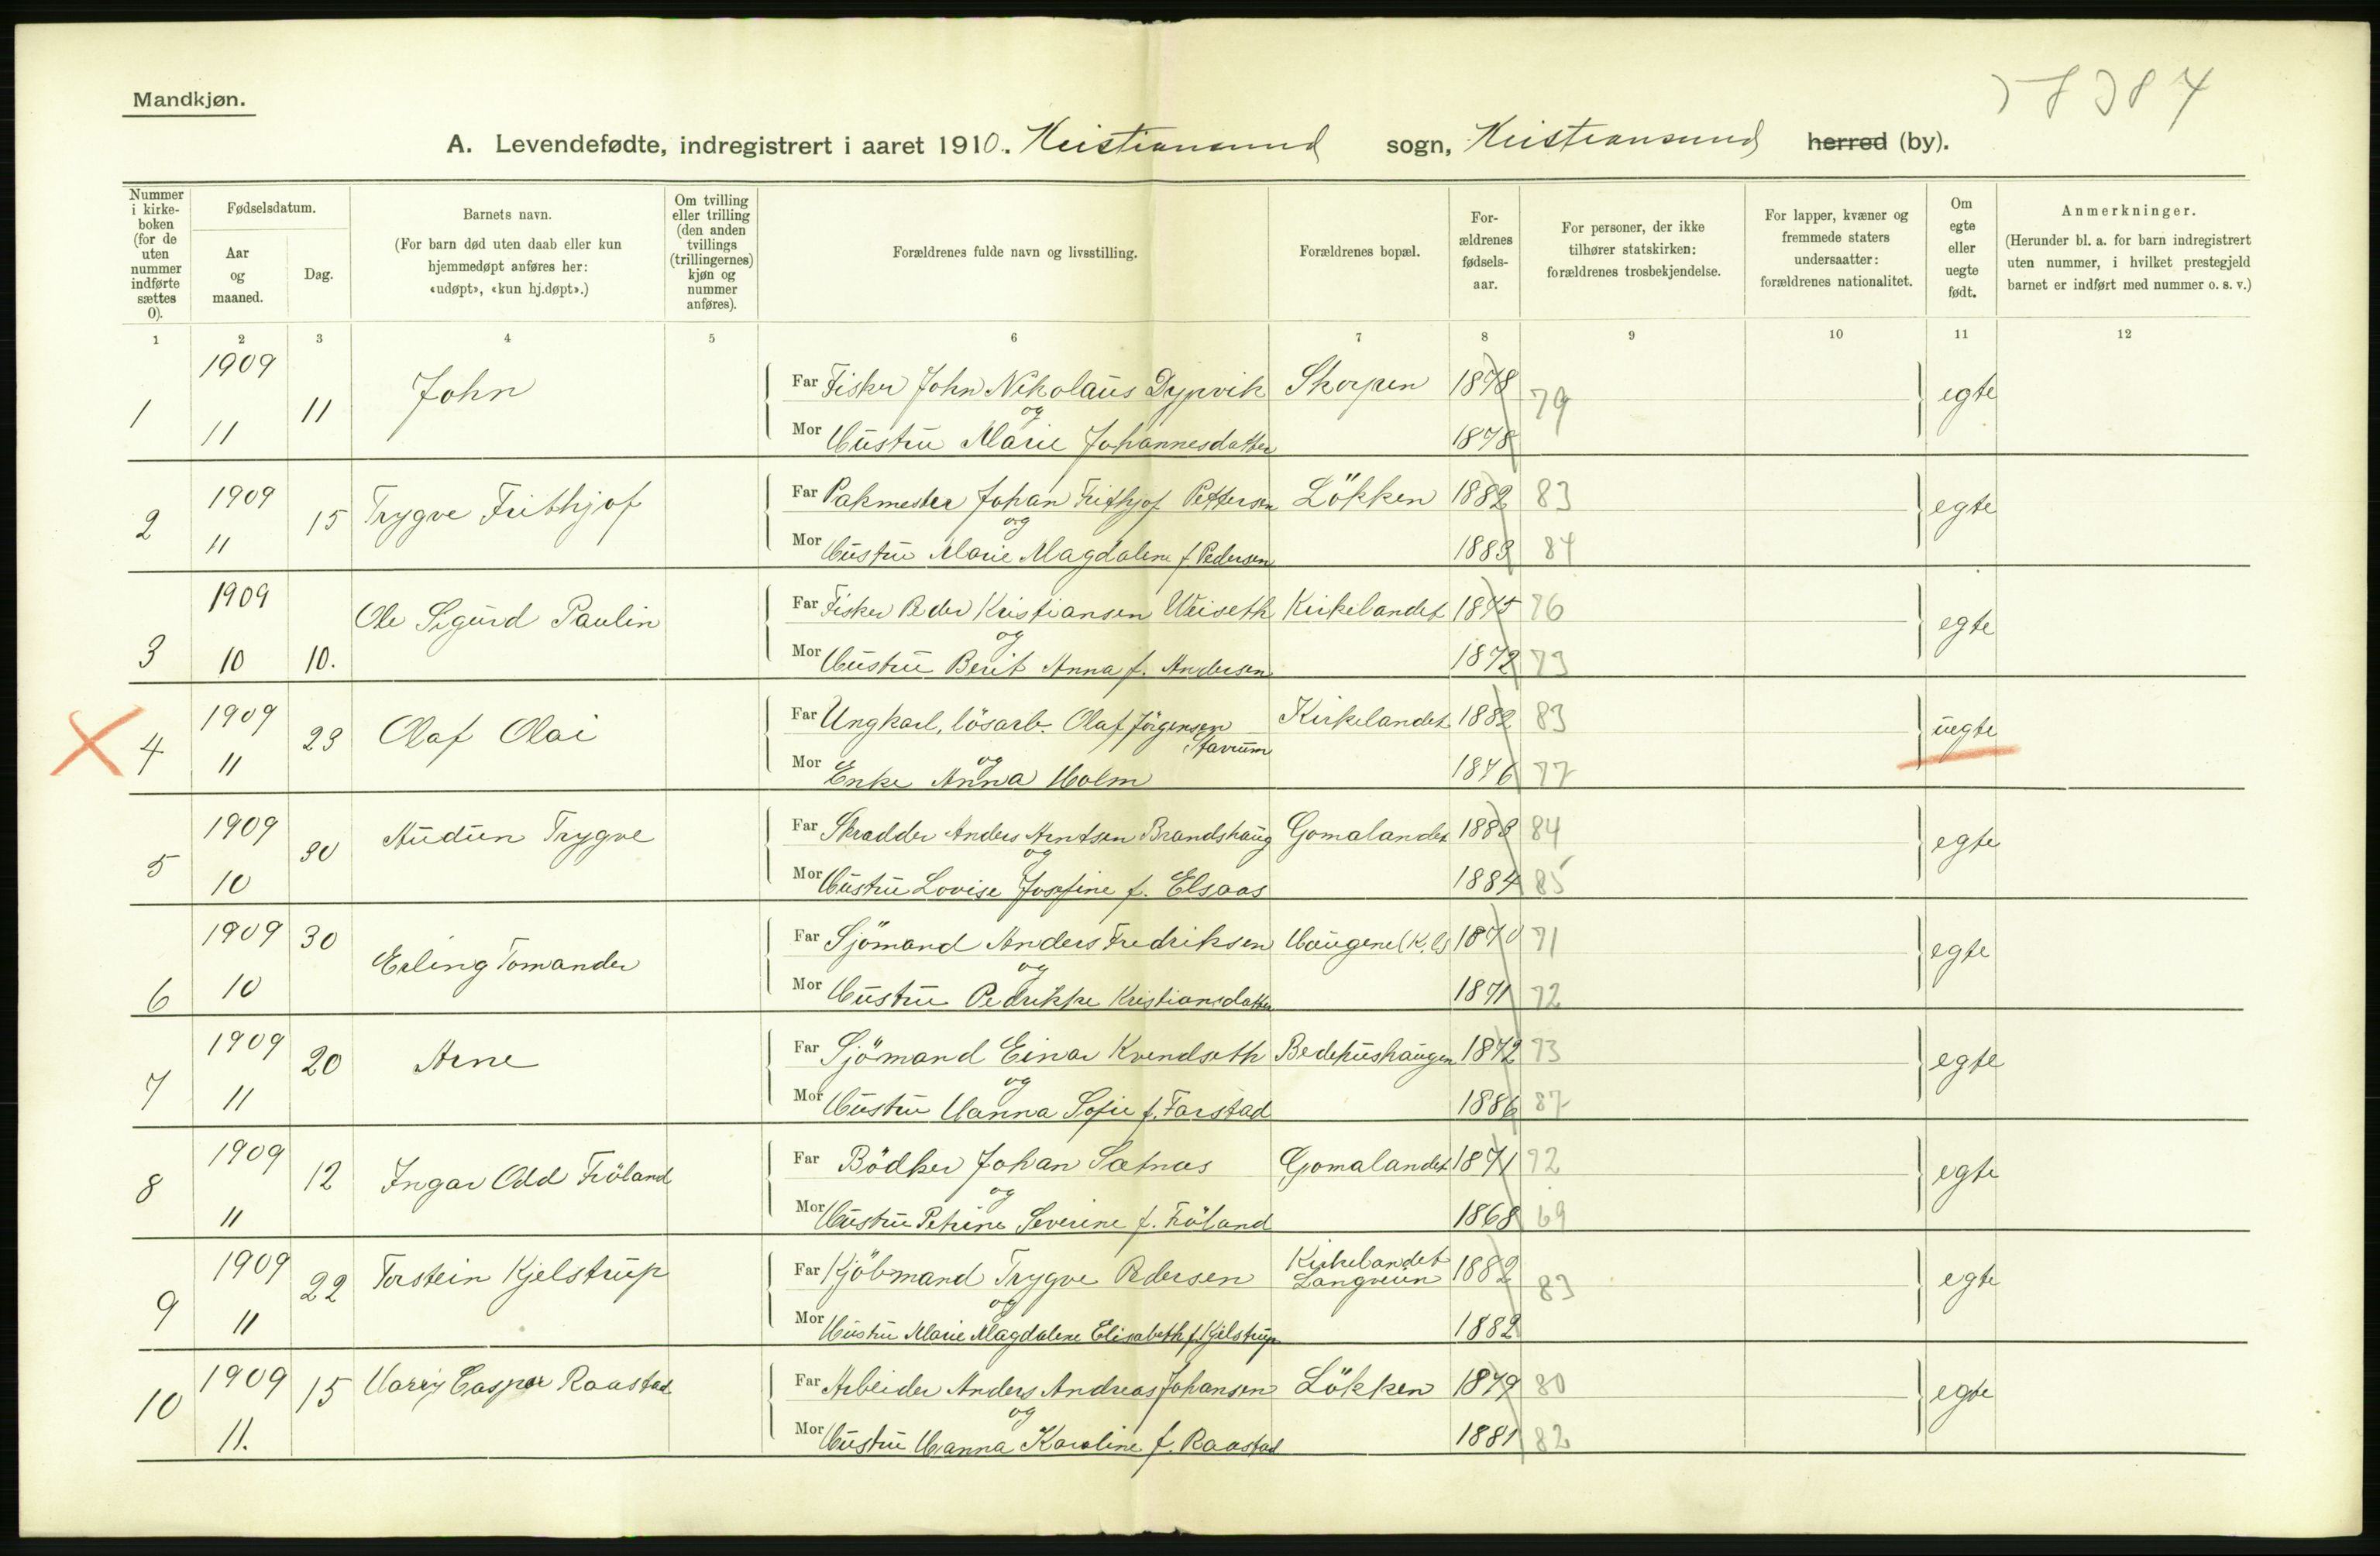 Mandkjøn.
A. Levendefødte, indregistrert i aaret 1910. Kristiansund sogn, Kristiansund herred (by).
Nummer i kirkeboken (for de uten nummer indførte sættes 0).
Fødselsdatum.
Aar og maaned.
Dag.
Barnets navn.
(For barn død uten daab eller kun hjemmedøpt anføres her: «udøpt», «kun hj.døpt».)
Om tvilling eller trilling (den anden tvillings (trillingernes) kjøn og nummer anføres).
Forældrenes fulde navn og livsstilling.
Forældrenes bopæl.
Forældrenes fødselsaar.
For personer, der ikke tilhører statskirken: forældrenes trosbekjendelse.
For lapper, kvæner og fremmede staters undersaatter: forældrenes nationalitet.
Om egte eller uegte født.
Anmerkninger.
(Herunder bl. a. for barn indregistrert uten nummer, i hvilket prestegjeld barnet er indført med nummer o. s. v.)
1 2 3 4 5 6 7 8 9 10 11 12
1 1909 11 11 John Far Fisker John Nikolaus Dypvik Skorpen 1878 79 egte
og
Mor Hustru Marie Johannesdatter 1878
2 1909 11 15 Trygve Frithjof Far Pakmester Johan Frithjof Pettersen Lökken 1882 83 egte
og
Mor Hustru Marie Magdalene f. Pedersen 1883 84
3 1909 10 10. Ole Sigurd Paulin Far Fisker Peder Kristiansen Ureseth Kirkelandet 1875 76 egte
og
Mor Hustru Berit Anna f. Andersen 1872 73
4 1909 11 23 Olaf Olai Far Ungkarl, lösarb. Olaf Jörgensen Stavrum Kirkelandet 1882 83 uegte
og
Mor Enke Anna Holm 1876 77
5 1909 10 30 Audun Trygve Far Skradder Anders Arntsen Brandshaug Gomalandet 1883 84 egte
og
Mor Hustru Lovise Josefine f. Elsaas 1884 85
6 1909 10 30 Erling Tomander Far Sjömand Anders Fredriksen Haugene (K.l) 1870 71 egte
og
Mor Hustru Pedrikke Kristiansdatter 1871 72
7 1909 11 20 Arne Far Sjömand Einar Kvendseth Bedehushaugen 1872 73 egte
og
Mor Hustru Hanna Sofie f. Farstad 1886 87
8 1909 11 12 Ingar Odd Fröland Far Bödker Johan Sætnes Gomalandet 1871 72 egte
og
Mor Hustru Petrine Severine f. Fröland 1868 69
9 1909 11 22 Torstein Kjelstrup Far Kjöbmand Trygve Pedersen Kirkelandet Langveien 1882 83 egte
og
Mor Hustru Marie Magdalene Elisabeth f. Kjelstrup 1882
10 1909 11. 15 Harry Caspar Raastad Far Arbeider Anders Andreas Johansen Lökken 1879 80 egte
og
Mor Hustru Hanna Karoline f. Raastad 1881 82